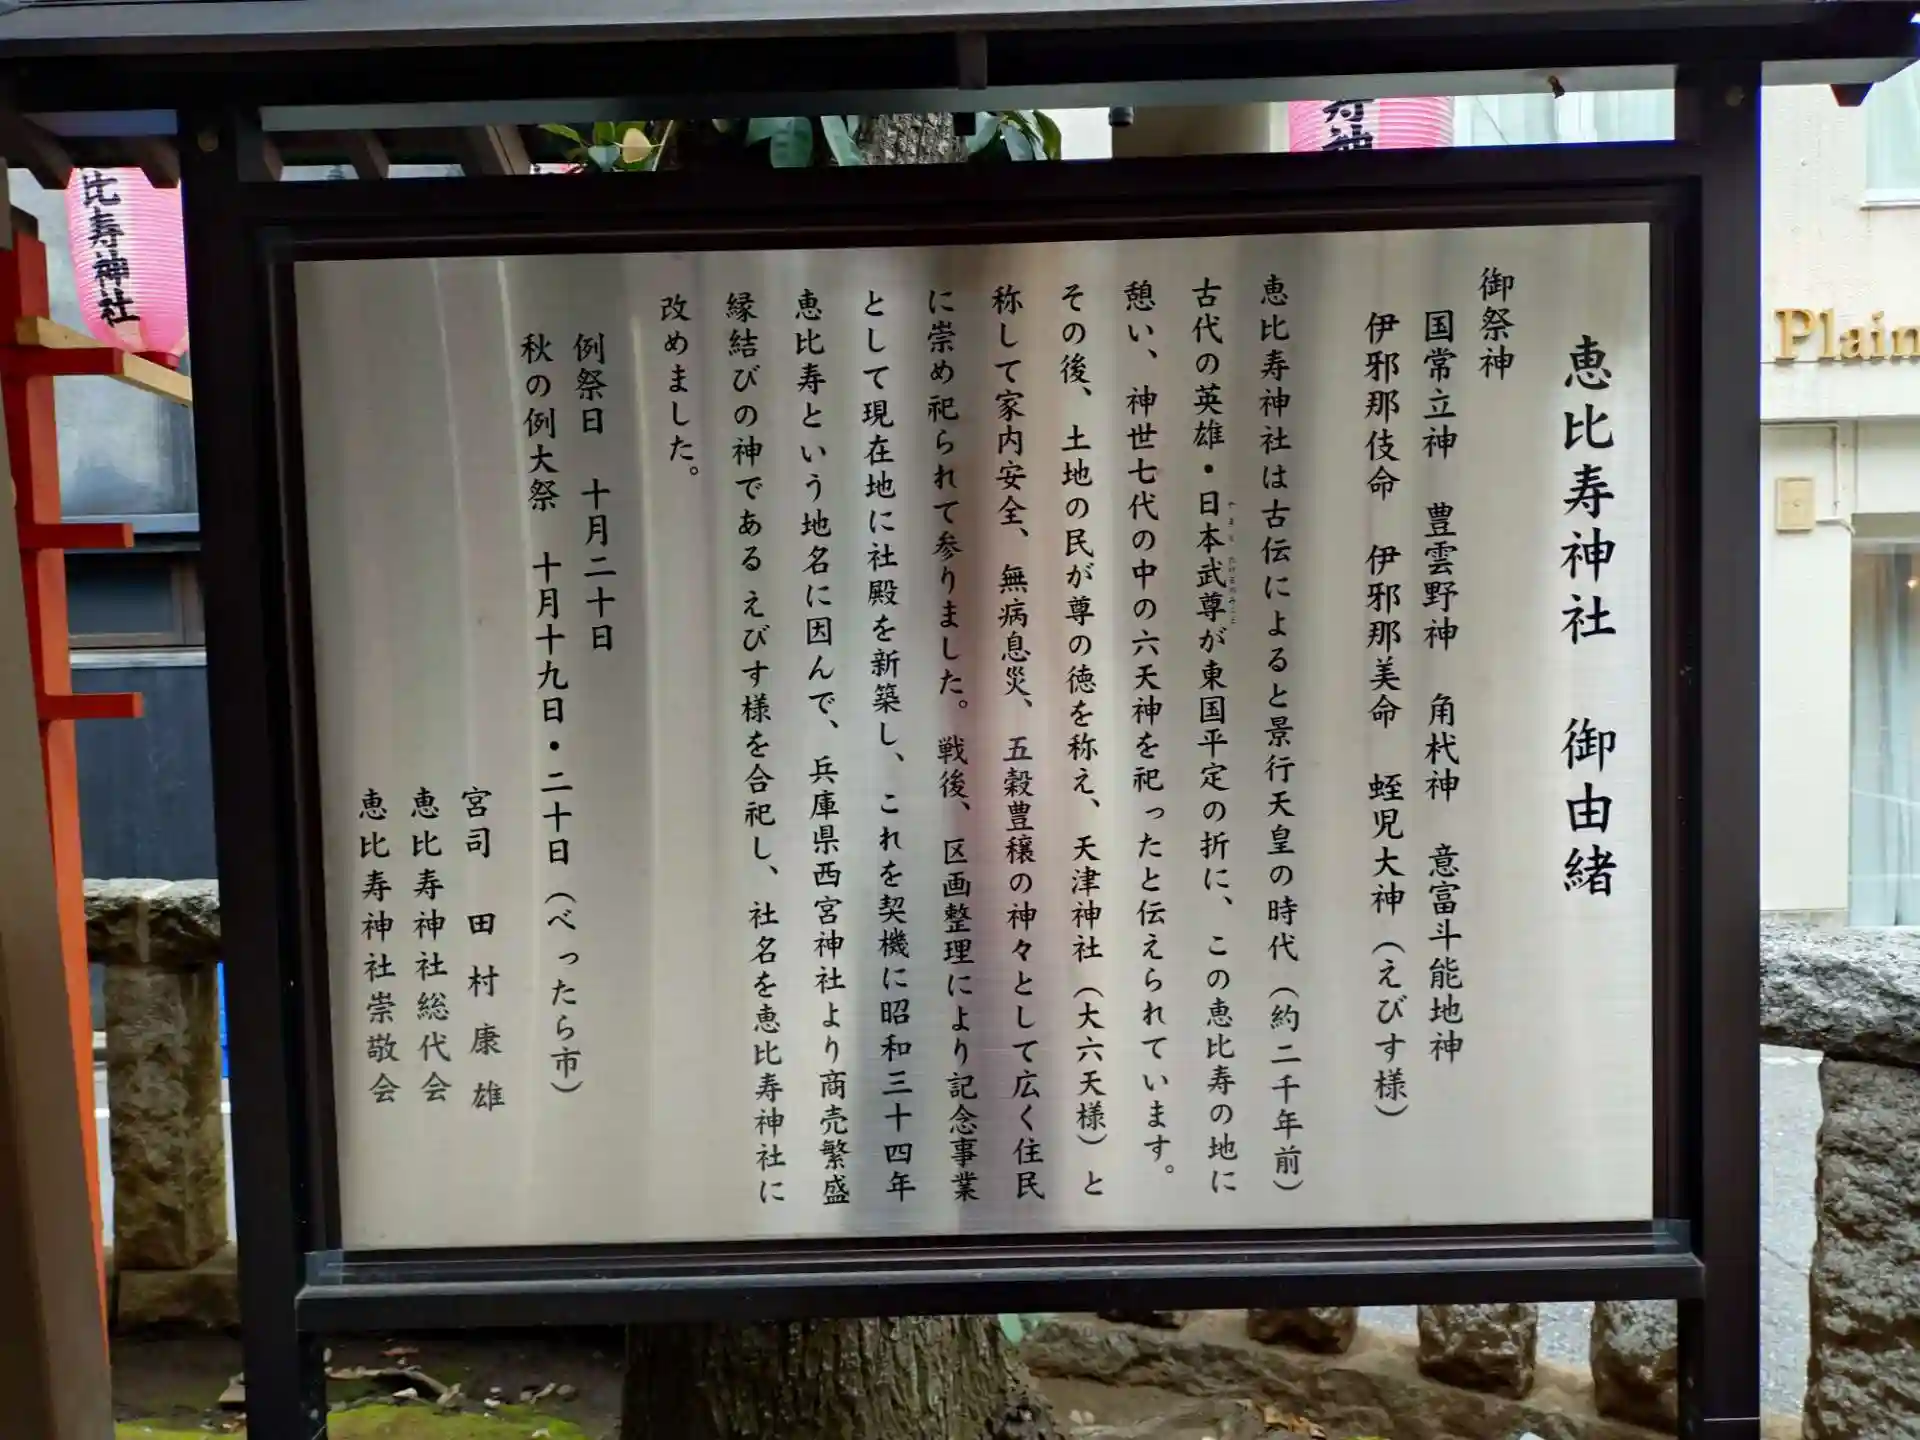 恵比寿神社　御由緒
御祭神
国常立神　豊雲野神　角杙神　意富斗能地神
伊邪那伎命　伊邪那美命　蛭児大神（えびす様）
恵比寿神社は古伝によると景行天皇の時代（約二千年前）
古代の英雄・日本武尊が東国平定の折に、この恵比寿の地に
やまと たけるのみこと
憩い、神世七代の中の六天神を祀ったと伝えられています。
その後、土地の民が尊の徳を称え、天津神社（大六天様）と
称して家内安全、無病息災、五穀豊穣の神々として広く住民
に崇め祀られて参りました。戦後、区画整理により記念事業
として現在地に社殿を新築し、これを契機に昭和三十四年
恵比寿という地名に因んで、兵庫県西宮神社より商売繁盛
縁結びの神である えびす様を合祀し、社名を恵比寿神社に
改めました。
例祭日　十月二十日
秋の例大祭　十月十九日・二十日（べったら市）
宮司　田村康雄
恵比寿神社総代会
恵比寿神社崇敬会
比寿神社
寿神
Plain